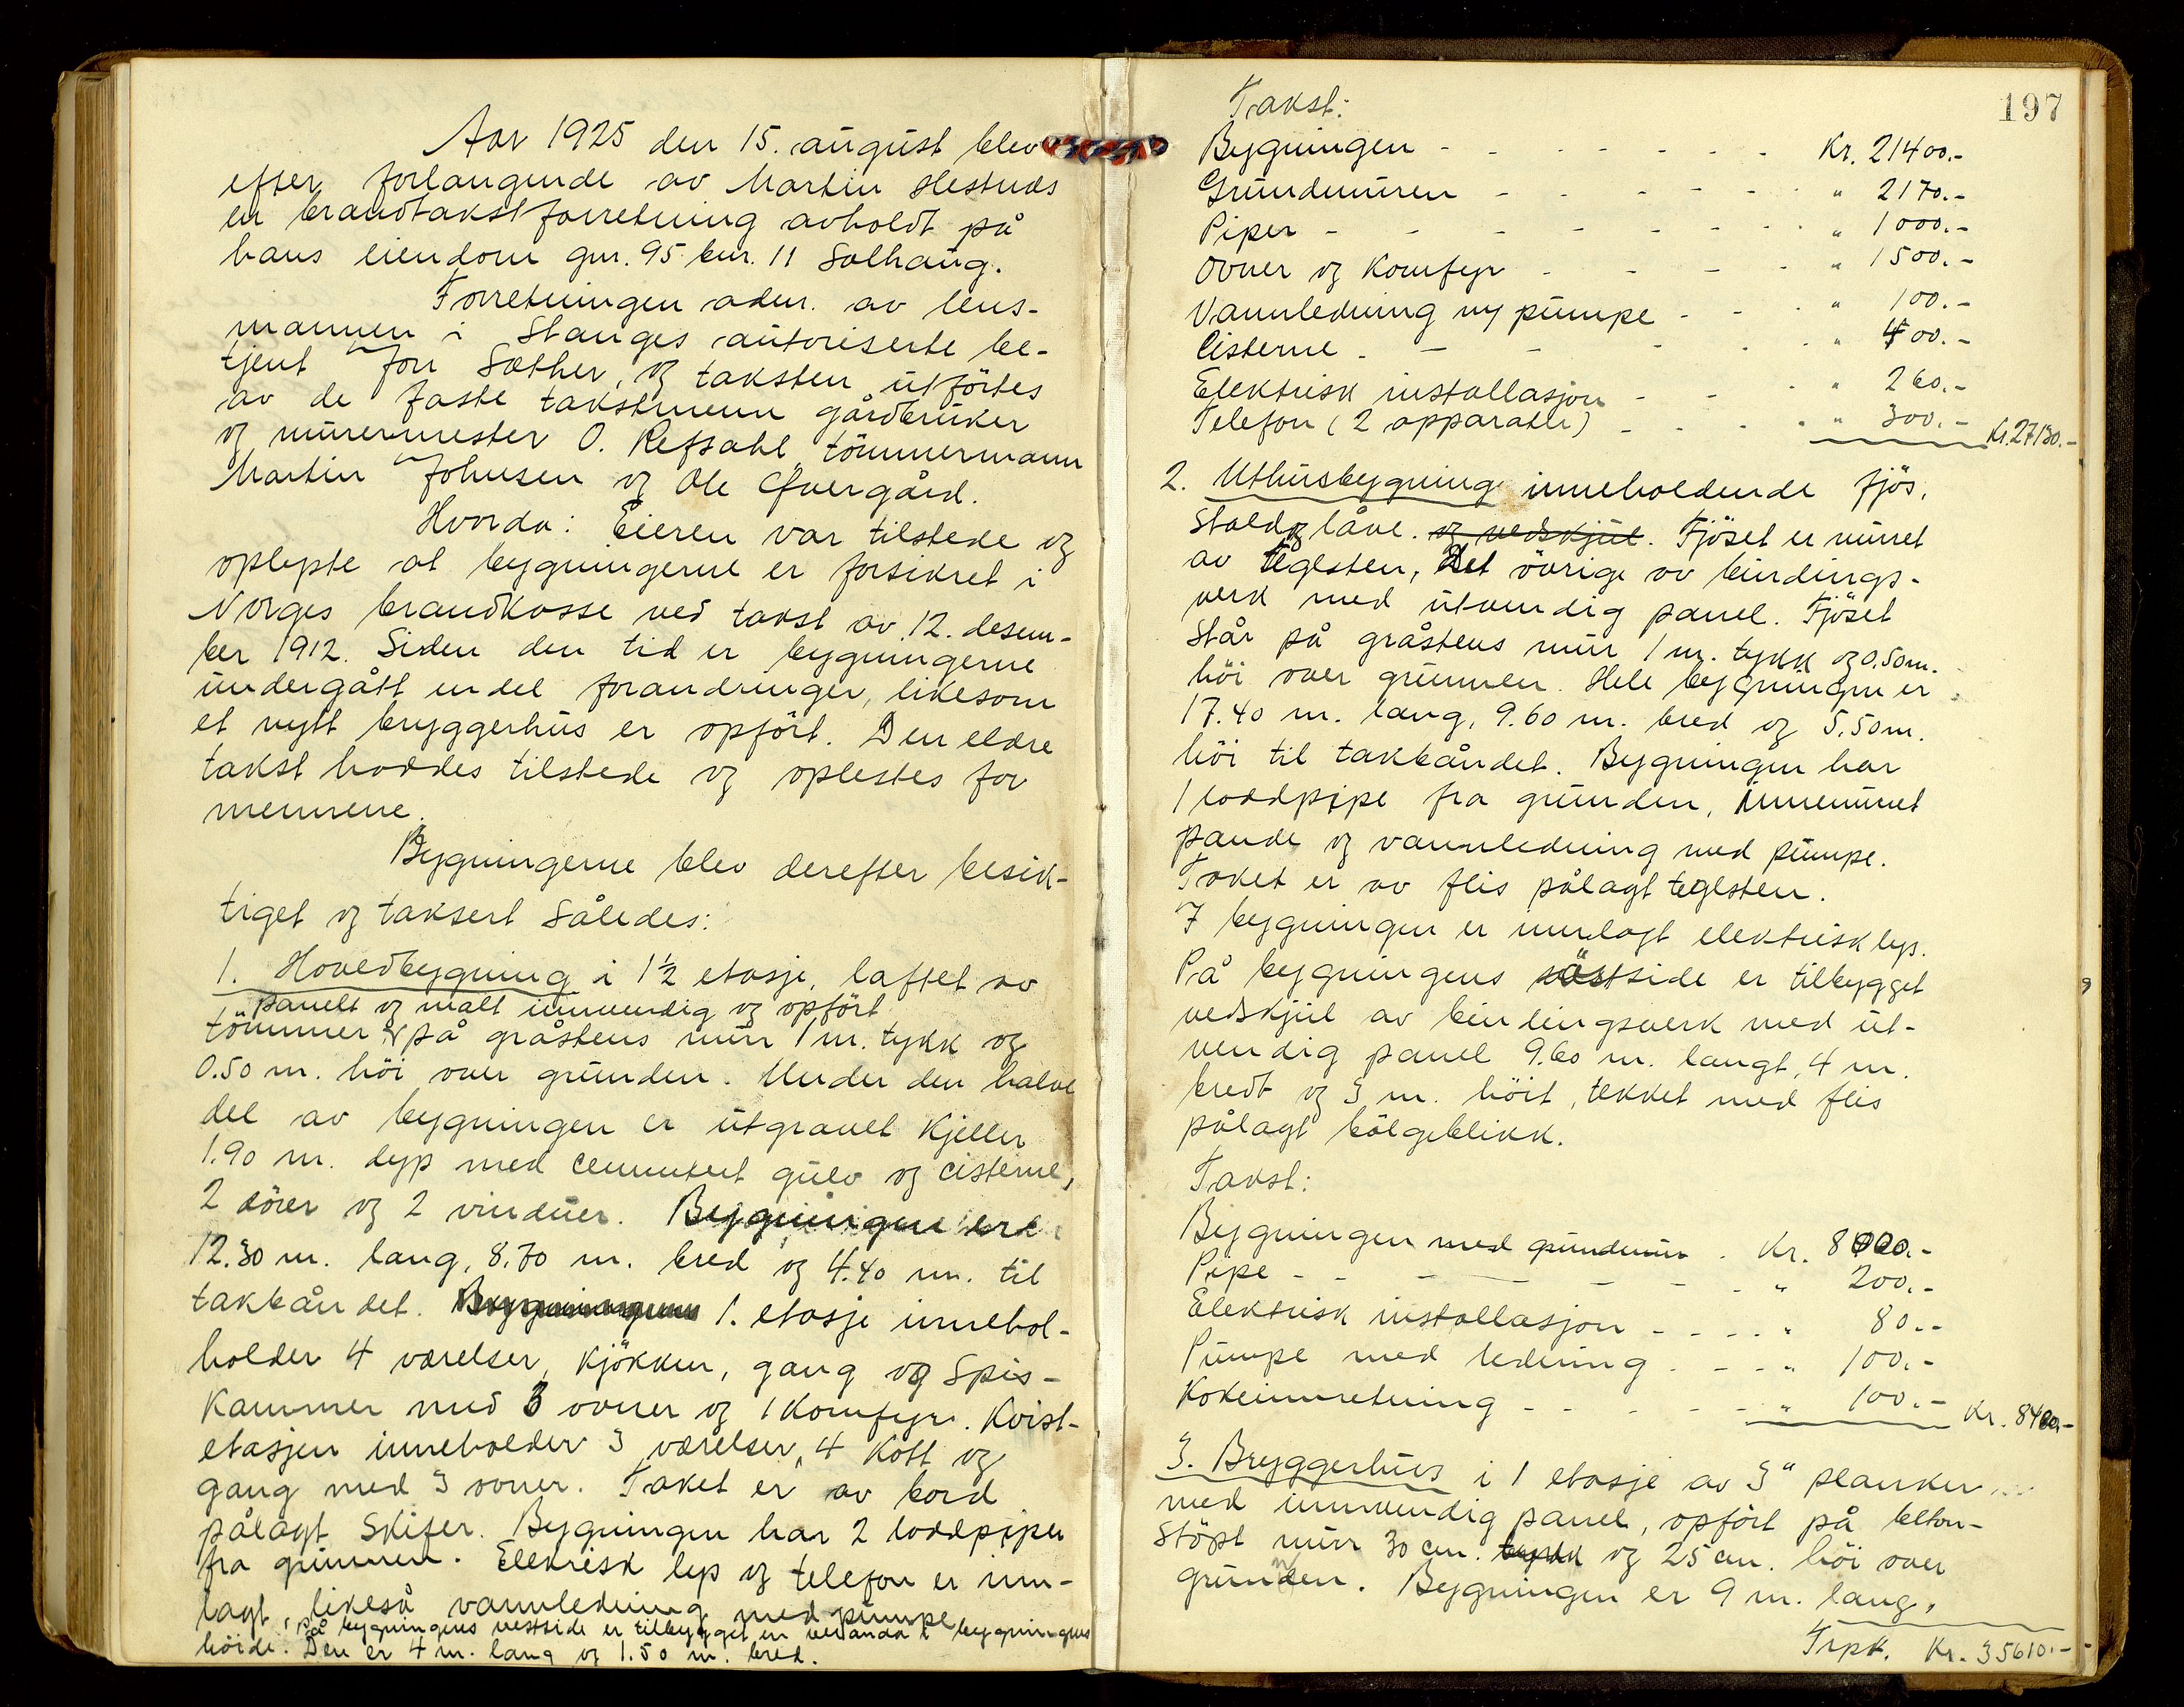 Aar 1925 den 15. august blev
efter forlangende av Martin Hestnes
en brandtakstforretning avholdt på
hans eiendom gnr. 95 bnr. 11 Solhaug.
Forretningen adm. av lens-
mannen i Stanges autoriserte be-
tjent Jon Sæther, og taksten utførtes
av de faste takstmenn gårdbruker
og murermester O. Refsahl, tömmermann
Martin Johnsen og Ole Kvergård.
Hvorda: Eieren var tilstede og
oplyste at bygningerne er forsikret i
Norges brandkasse ved takst av 12. desem-
ber 1912. Siden den tid er bygningerne
undergått en del forandringer, likesom
et nytt bryggerhus er opfört. Den eldre
takst haddes tilstede og oplestes for
mennene.
Bygningerne blev derefter besik-
tiget og taksert således:
1. Hovedbygning i 1½ etasje, laftet av
panelt og malt innvendig og opfört
tömmer på gråstens mur 1 m. tykk og
0.50 m. höi over grunden. Under den halve
del av bygningen er utgravet kjeller
1.90 m. dyp med cementert gulv og cisterne,
2 dörer og 2 vinduer. Bygningen er
12.30 m. lang, 8.70 m. bred og 4.40 m. til
takbåndet. Bygningens 1. etasje innehol-
holder 4 værelser, kjökken, gang og spis-
kammer med 3 ovner og 1 komfyr. Kvist-
etasjen inneholder 3 værelser, 4 kott og
gang med 3 ovner. Taket er av bord
pålagt skifer. Bygningen har 2 loddpiper
fra grunnen. Elekrisk lys og telefon er inn-
lagt, likeså vannledning med pumpe
på bygningens vestside er tilbygget en veranda i bygningens
höide. Den er 4 m. lang og 1.50 m. bred.
197
Takst:
Bygningen - - - - - - - Kr. 21400.-
Grundmuren - - - - - - " 2170.-
Piper - - - - - - - - " 1000.-
Ovner og komfyr - - - - " 1500.-
Vannledning og pumpe - - - " 100.-
Cisterne - - - - - - " 400.-
Elektrisk installasjon - - - " 260.-
Telefon (2 apparater) - - - - " 300.- Kr. 27130.-
2. Uthusbygning inneholdende fjös,
stald og låve. og vedskjul. Fjöset er muret
av teglsten, det övrige av bindings-
verk med utvendig panel. Fjöset
står på gråstens mur 1 m. tykk og 0.50 m.
höi over grunnen. Hele bygningen er
17.40 m. lang, 9.60 m. bred og 5.50 m.
höi til takbåndet. Bygningen har
1 loddpipe fra grunden, innemuret
pande og vannledning med pumpe.
Taket er av flis pålagt teglsten.
I bygningen er innlagt elektrisk lys.
På bygningens östside er tilbygget
vedskjul av bindingsverk med ut-
vendig panel 9.60 m. langt, 4 m.
bredt og 3 m. höit, tekket med flis
pålagt bölgeblikk.
Takst:
Bygningen med grundmur - Kr. 8000.-
Pipe - - - - - - - " 200.-
Elektrisk installasjon - - - - " 80.-
Pumpe med ledning - - - " 100.-
Kokeinnretning - - - - - " 100.- Kr. 8480.-
3. Bryggerhus i 1 etasje av 3" planker
med innvendig panel, opfört på beton-
stöpt mur 30 cm. tykk og 25 cm. höi over
grunden. Bygningen er 9 m. lang,
Trpt. Kr. 35610.-